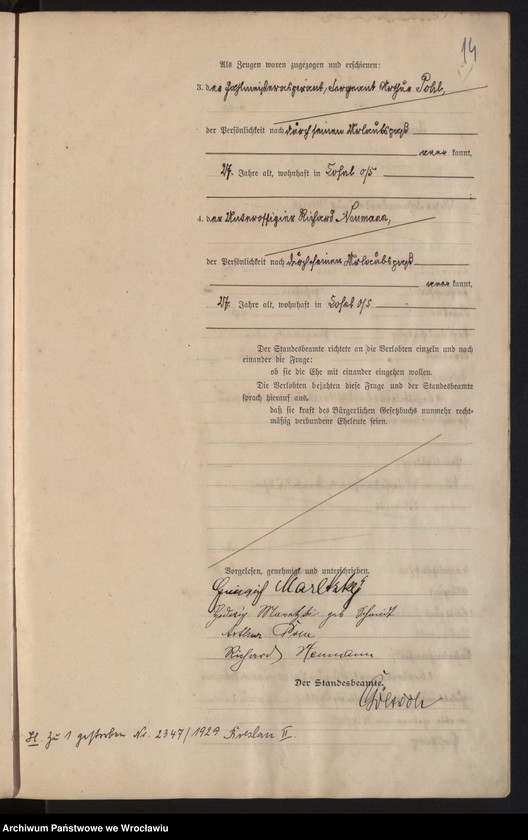 14
Als Zeugen waren zugezogen und erschienen:
3. der Zahlmeisteraspirant, Sergeant Arthur Pohl,
der Persönlichkeit nach durch seinen Urlaubspaß
kannt,
27 Jahre alt, wohnhaft in Cosel O/S
4. der Unteroffizier Richard Neumann,
der Persönlichkeit nach durch seinen Urlaubspaß
kannt,
27 Jahre alt, wohnhaft in Cosel O/S
Der Standesbeamte richtete an die Verlobten einzeln und nach
einander die Frage:
ob sie die Ehe mit einander eingehen wollen.
Die Verlobten bejahten diese Frage und der Standesbeamte
sprach hierauf aus,
daß sie kraft des Bürgerlichen Gesetzbuchs nunmehr recht-
mäßig verbundene Eheleute seien.
Vorgelesen, genehmigt und unterschrieben.
Heinrich
Hedwig geb Schmidt
Arthur Pohl
Richard Neumann
Der Standesbeamte.
H. zu 1 gestorben Nr. 2347/1929 Breslau II.
Archiwum Państwowe we Wrocławiu